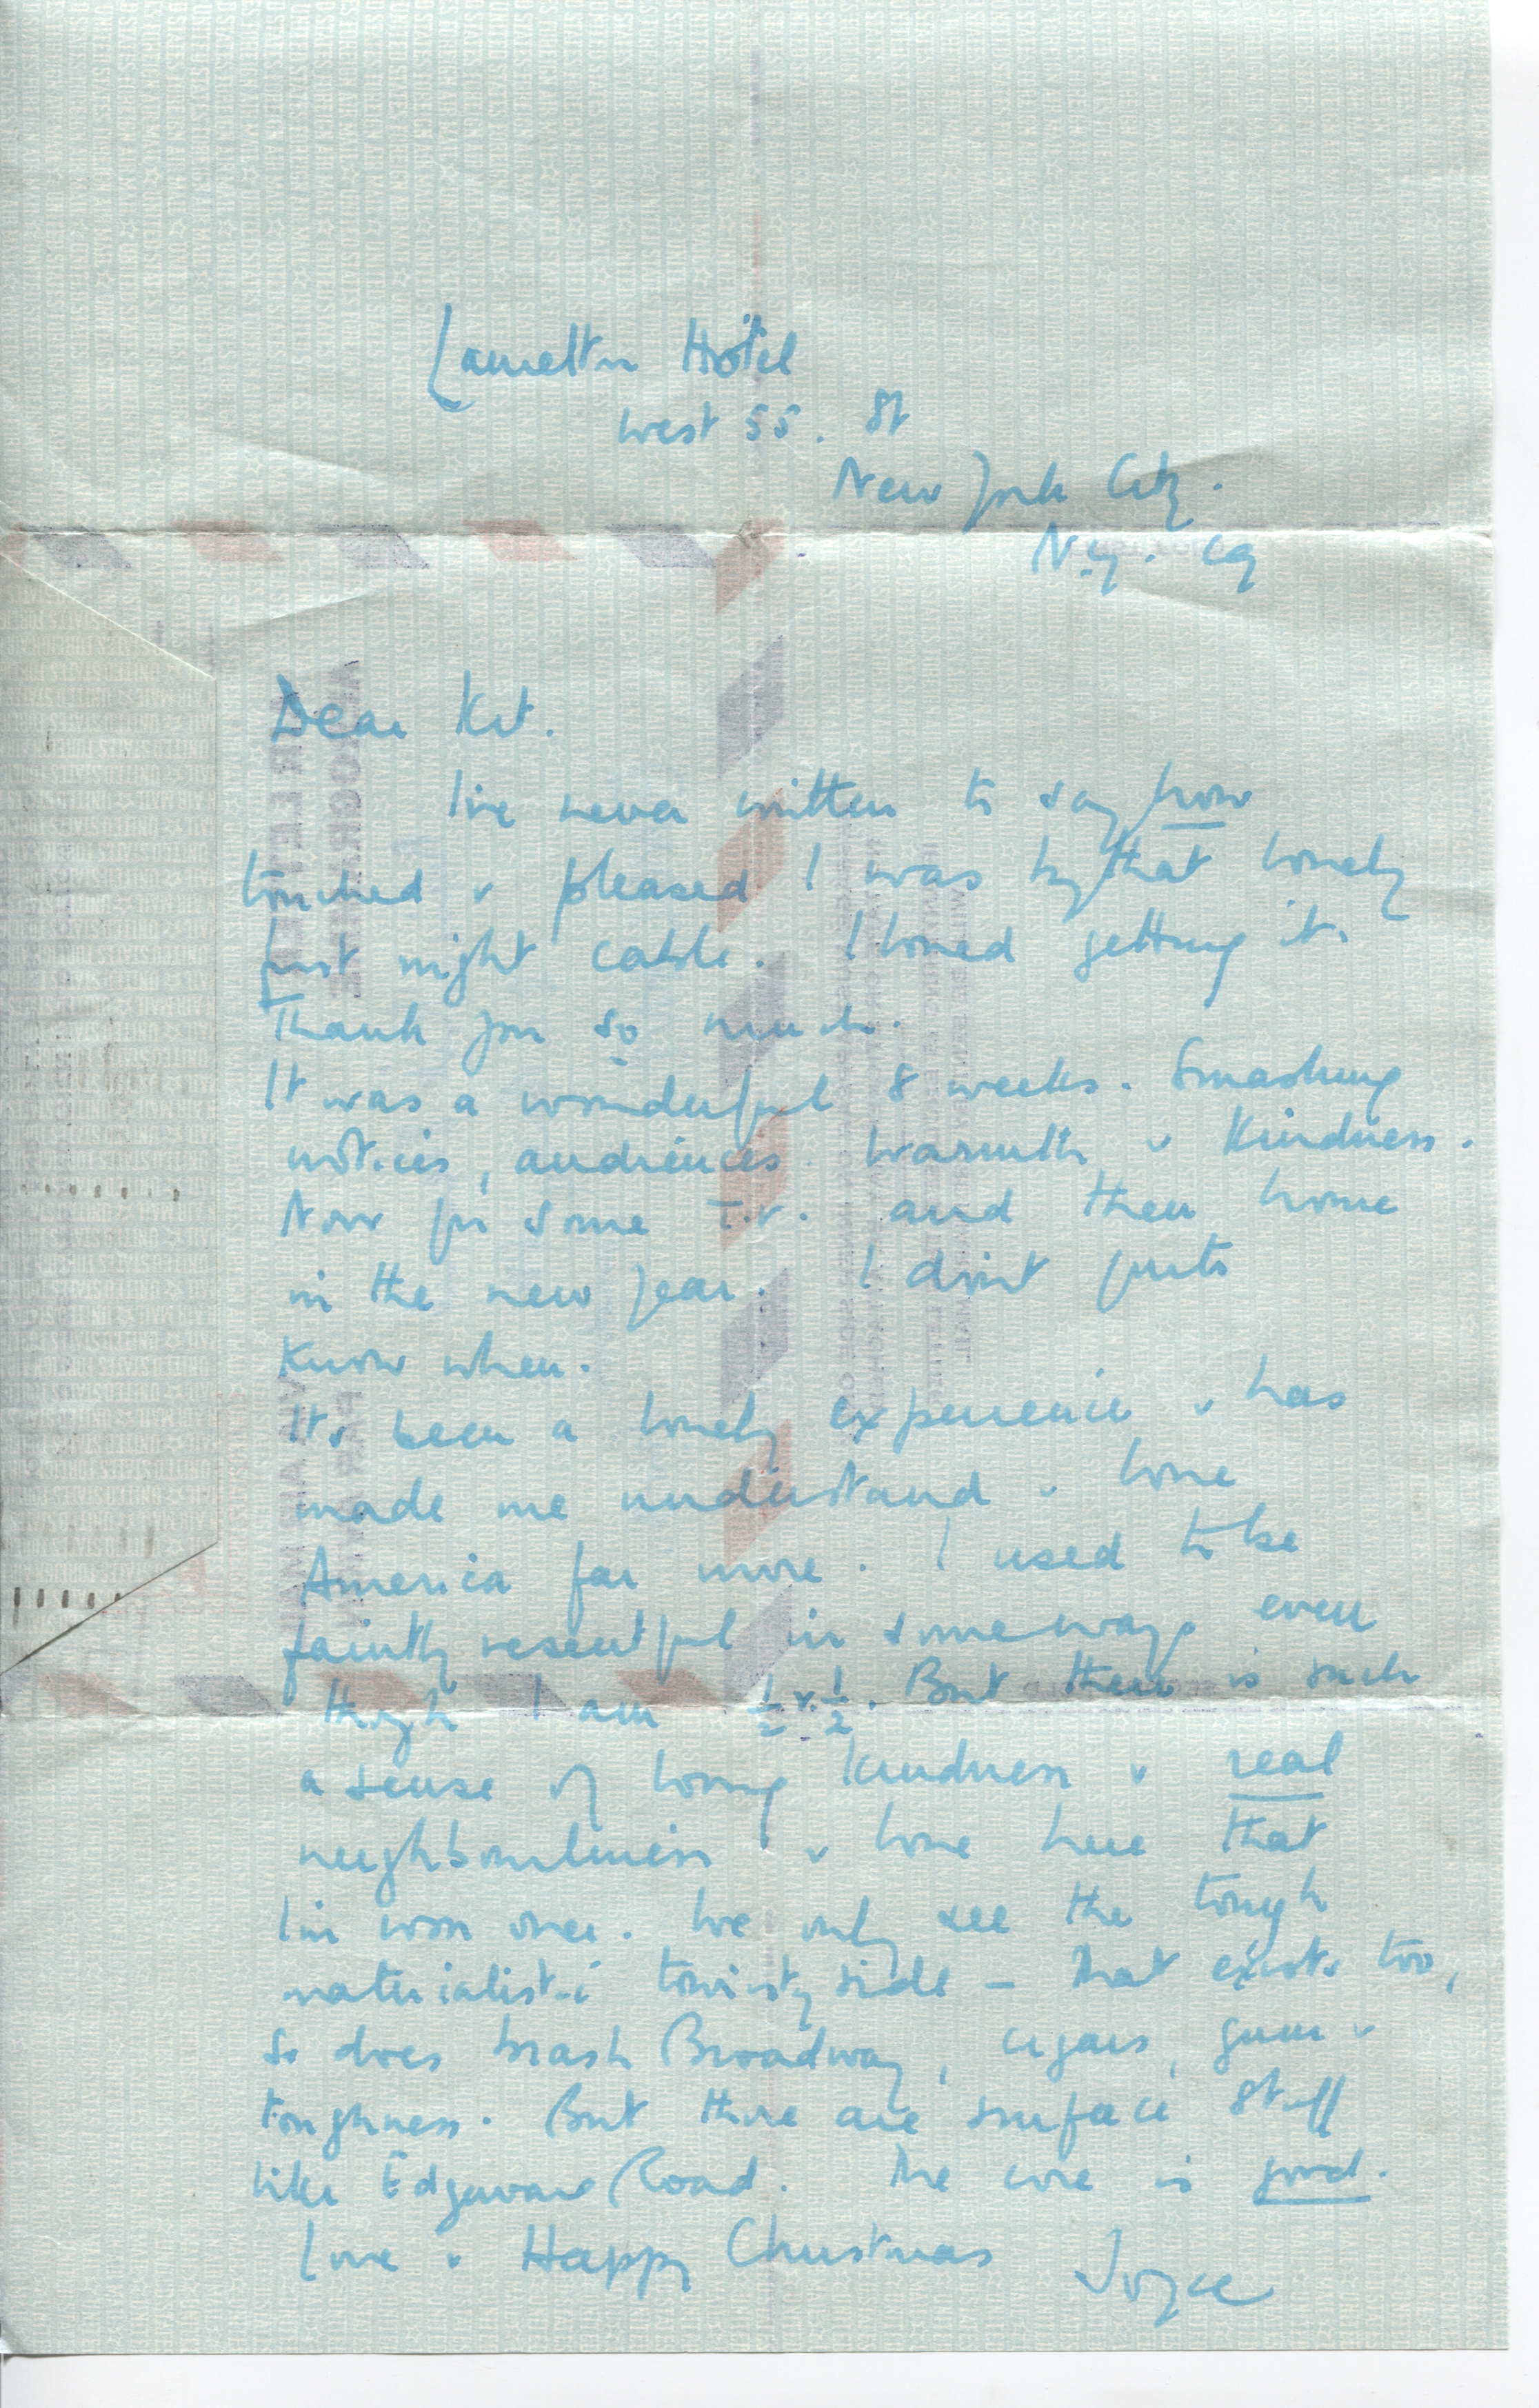 Laurelton Hotel
West 55. St
New York City.
N.Y. 19
Dear Kit.
I've never written to say how
touched & pleased I was by that lovely
first night cable. I loved getting it.
Thank you so much.
It was a wonderful 8 weeks. Smashing
notices, audiences. Warmth & Kindness.
Now for some T.V. and then home
in the new year. I don't quite
know when.
Its been a lovely experience & has
made me understand & love
America far more. I used to be
faintly resentful in some ways even
though I am ½ & ½. But there is such
a sense of loving kindness & real
neighbourliness & love here that
I'm won over. We only see the tough
materialistic touristy side – that exists too,
so does brash Broadway, cigars, gum &
toughness. But these are surface stuff
like Edgware Road. The core is good.
Love & Happy Christmas Joyce